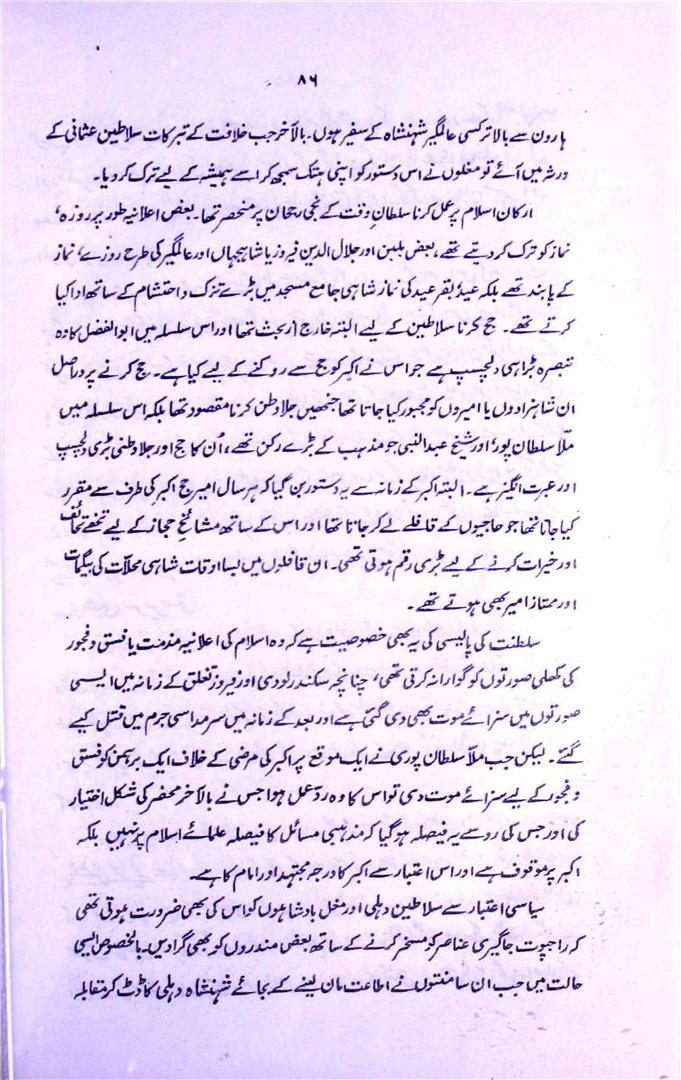 ۸۶
ہارون سے بالاتر کسی عالمگیر شہنشاہ کے سفیر ہوں۔ بالآخر جب خلافت کے تبرکات سلاطین عثمانی کے
ورثہ میں آئے تو مغلوں نے اس دستور کو اپنی ہتک سمجھ کر اسے ہمیشہ کے لیے ترک کر دیا۔
ارکان اسلام پر عمل کرنا سلطانِ وقت کے نجی رجحان پر منحصر تھا۔ بعض اعلانیہ طور پر روزہ،
نماز کو ترک کر دیتے تھے، بعض بلبن اور جلال الدین فیروز یا شاہجہاں اور عالمگیر کی طرح روزے، نماز
کے پابند تھے بلکہ عید، بقر عید کی نماز شاہی جامع مسجد میں بڑے تزک و احتشام کے ساتھ ادا کیا
کرتے تھے۔ حج کرنا سلاطین کے لیے البتہ خارج از بحث تھا اور اس سلسلہ میں ابوالفضل کا وہ
تبصرہ بڑا ہی دلچسپ ہے جو اس نے اکبر کو حج سے روکنے کے لیے کیا ہے۔ حج کرنے پر دراصل
ان شاہزادوں یا امیروں کو مجبور کیا جاتا تھا جنھیں جلا وطن کرنا مقصود تھا بلکہ اس سلسلہ میں
ملّا سلطان پور، اور شیخ عبدالنبی جو مذہب کے بڑے رکن تھے، اُن کا حج اور جلا وطنی بڑی دلچسپ
اور عبرت انگیز ہے۔ البتہ اکبر کے زمانہ سے یہ دستور بن گیا کہ ہر سال امیر حج اکبر کی طرف سے مقرر
کیا جاتا تھا جو حاجیوں کے قافلے لے کر جاتا تھا اور اس کے ساتھ مشائخِ حجاز کے لیے تحفے تحائف
اور خیرات کرنے کے لیے بڑی رقم ہوتی تھی۔ ان قافلوں میں بسا اوقات شاہی محلّات کی بیگمات
اور ممتاز امیر بھی ہوتے تھے۔
سلطنت کی پالیسی کی یہ بھی خصوصیت ہے کہ وہ اسلام کی اعلانیہ مذمت یا فسق و فجور
کی کھلی صورتوں کو گوارا نہ کرتی تھی، چنانچہ سکندر لودی اور فیروز تغلق کے زمانہ میں ایسی
صورتوں میں سزائے موت بھی دی گئی ہے اور بعد کے زمانہ میں سرمد اسی جرم میں قتل کیے
گئے۔ لیکن جب ملّا سلطان پوری نے ایک موقع پر اکبر کی مرضی کے خلاف ایک برہمن کو فسق
و فجور کے لیے سزائے موت دی تو اس کا وہ ردِّ عمل ہوا جس نے بالآخر محضر کی شکل اختیار
کی اور جس کی رو سے یہ فیصلہ ہو گیا کہ مذہبی مسائل کا فیصلہ علمائے اسلام پر نہیں بلکہ
اکبر پر موقوف ہے اور اس اعتبار سے اکبر کا درجہ مجتہد اور امام کا ہے۔
سیاسی اعتبار سے سلاطین دہلی اور مغل بادشاہوں کو اس کی بھی ضرورت ہوتی تھی
کہ راجپوت جاگیری عناصر کو مسخر کرنے کے ساتھ بعض مندروں کو بھی گرا دیں۔ بالخصوص ایسی
حالت میں جب ان سامنتوں نے اطاعت مان لینے کے بجائے شہنشاہ دہلی کا ڈٹ کر مقابلہ